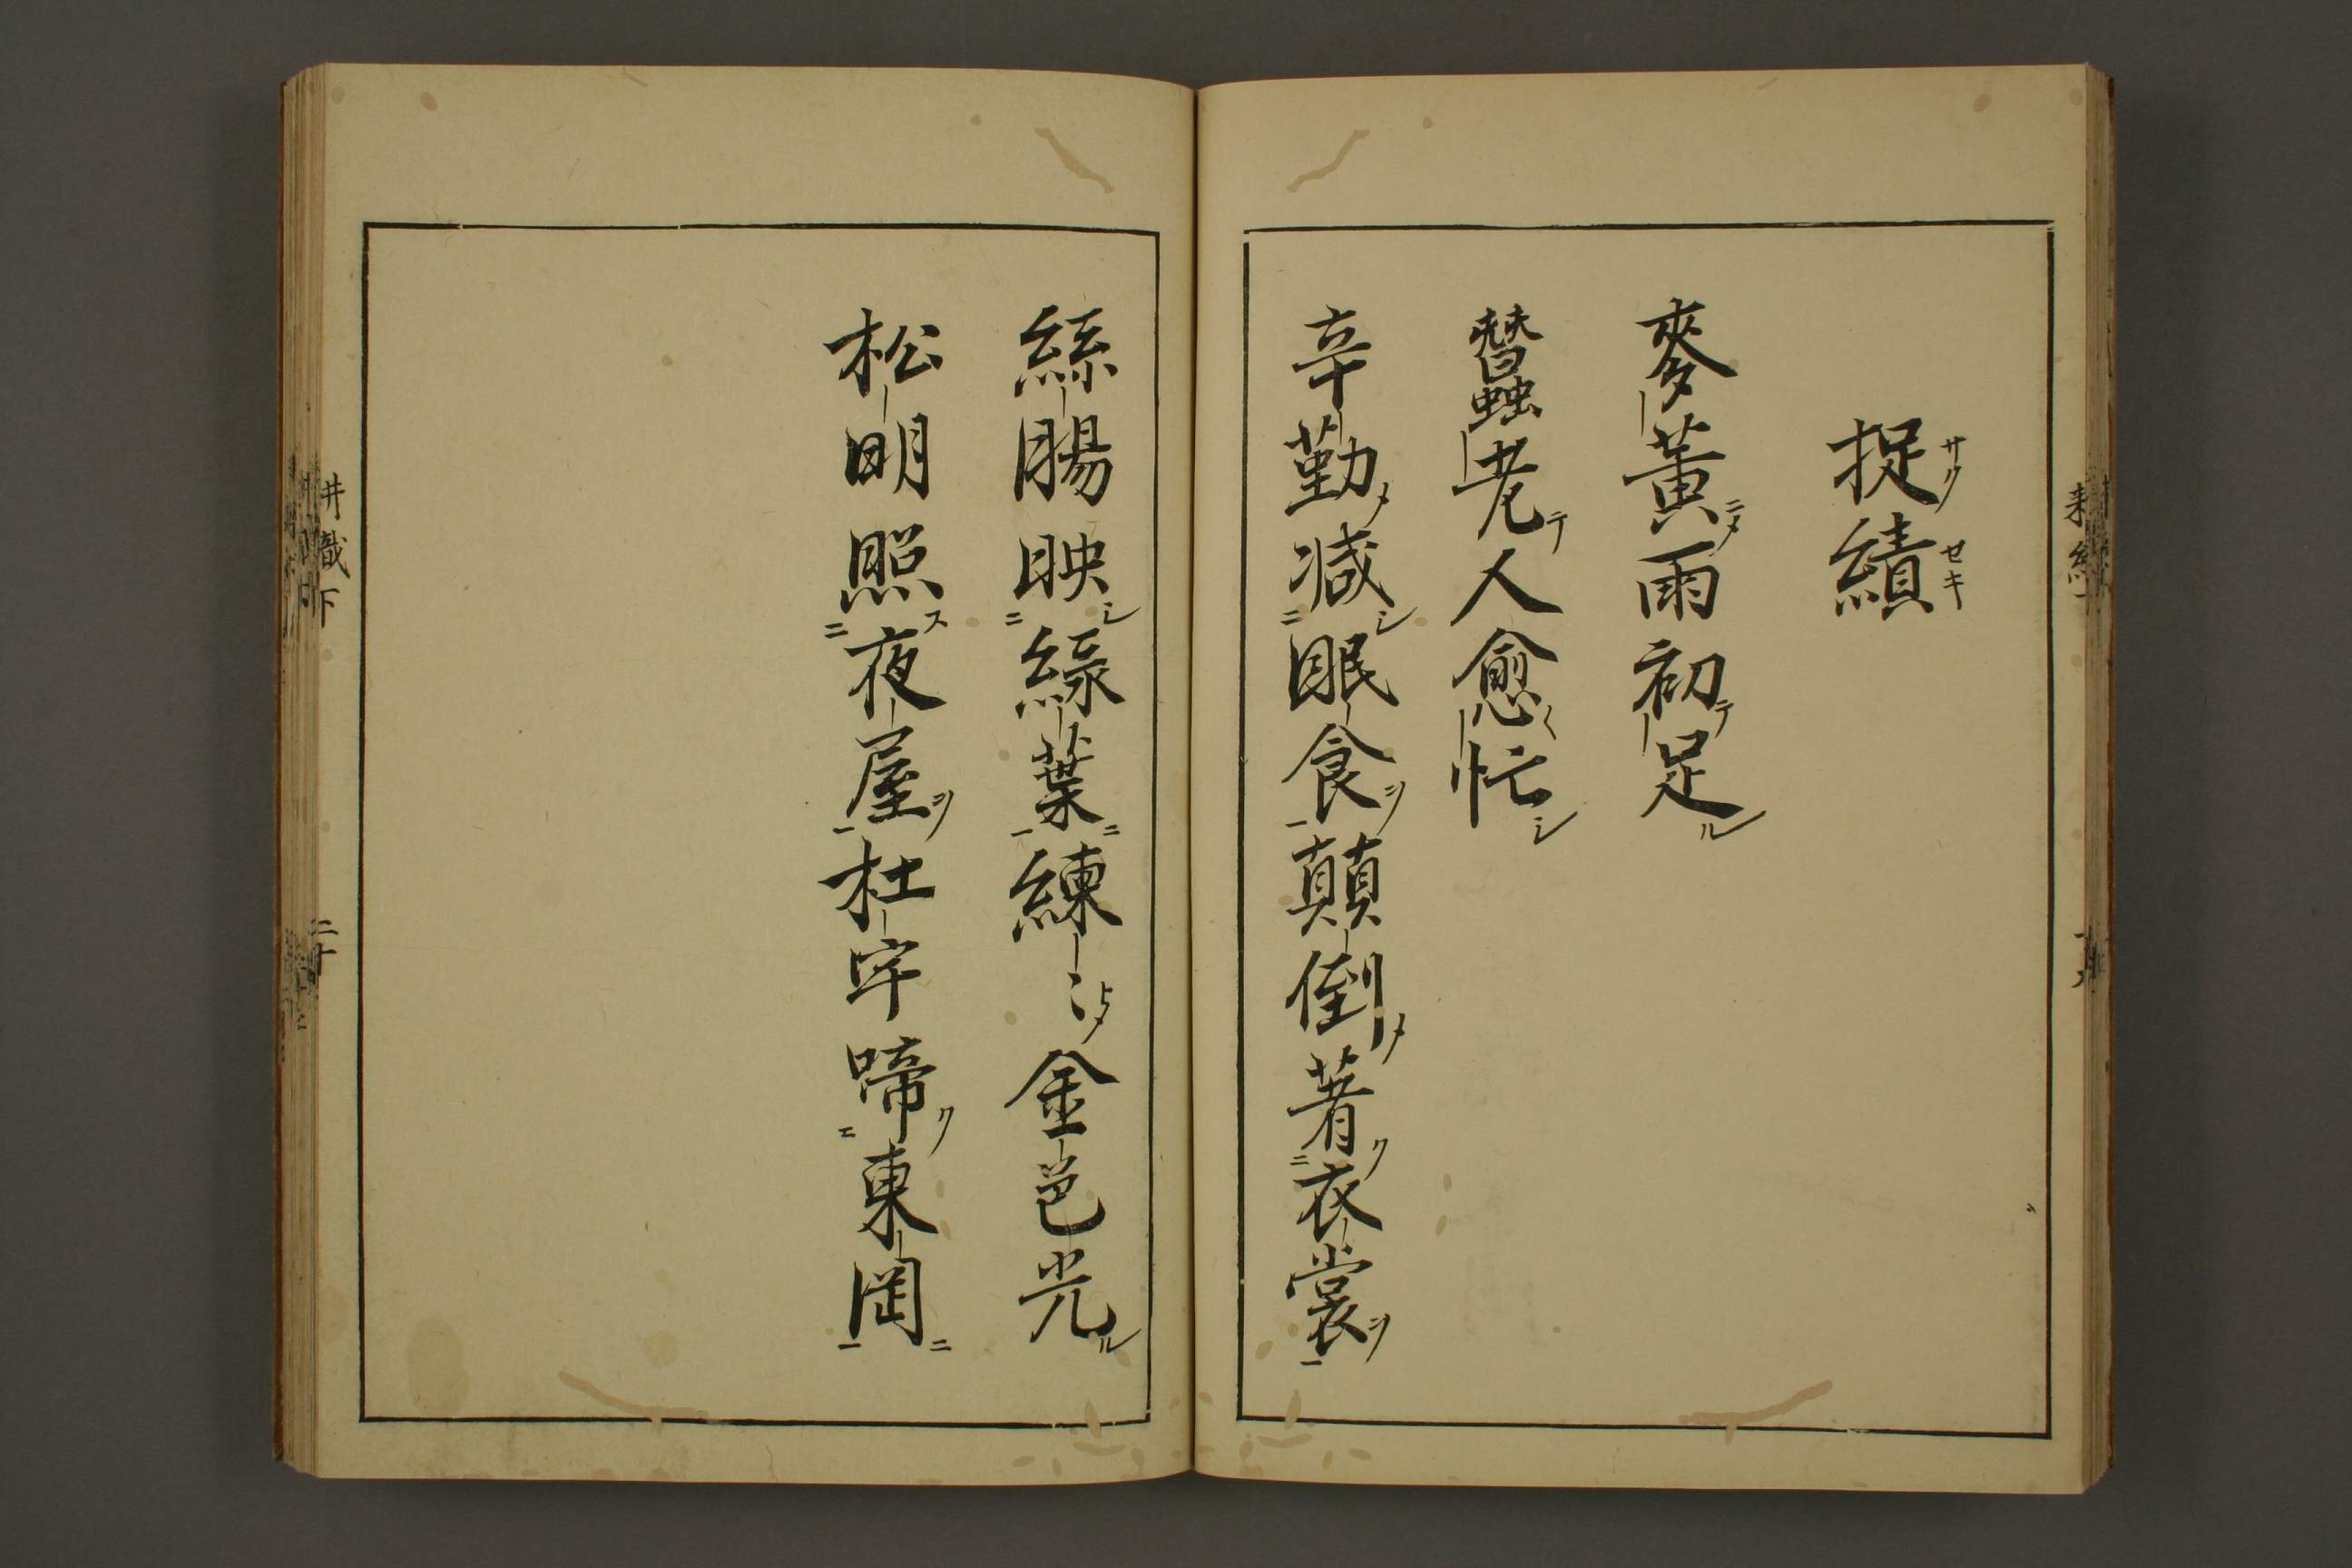 捉績
サク セキ
麥黃雨初足
蠶老人愈忙
辛勤減眠食顛倒著衣裳
絲腸映綠葉練〻金色光
松明照夜屋杜宇啼東岡
耕織下
二十